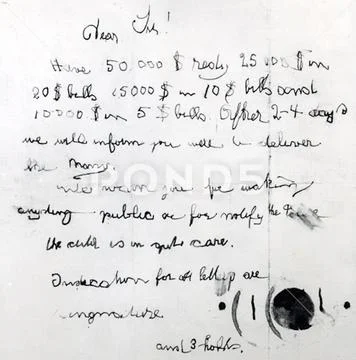 Dear Sir!
Have 50.000 $ redy 25000 $ in
20 $ bills 15000 $ in 10 $ bills and
10000 $ in 5 $ bills. After 2-4 days
we will inform you were to deliver
the Mony.
We warn you for making
anyding public or for notify the
the child is in gute care.
Indication for all letters are
singnature
and 3 holds.
POND5